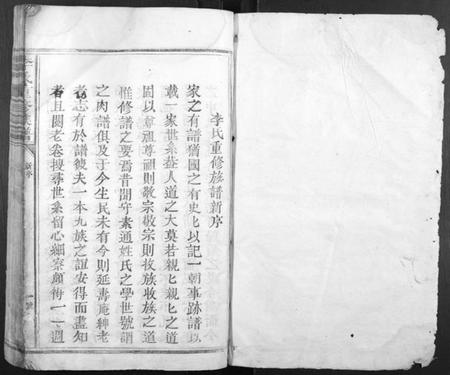 李氏重修族譜新序
家之有譜猶國之有史史以記一朝事跡譜以
載一家世系葢人道之大莫若親親親之道
固以尊祖尊祖則敬宗敬宗則收族收族之道
惟修譜之要焉昔閒守素通姓氏之學世號譜
之肉譜俱及于今生民未有今則延壽庵
老志有於譜
夫一本九族之誼安得而盡知
者且閱老卷搜尋世系留心細察顧得一一週